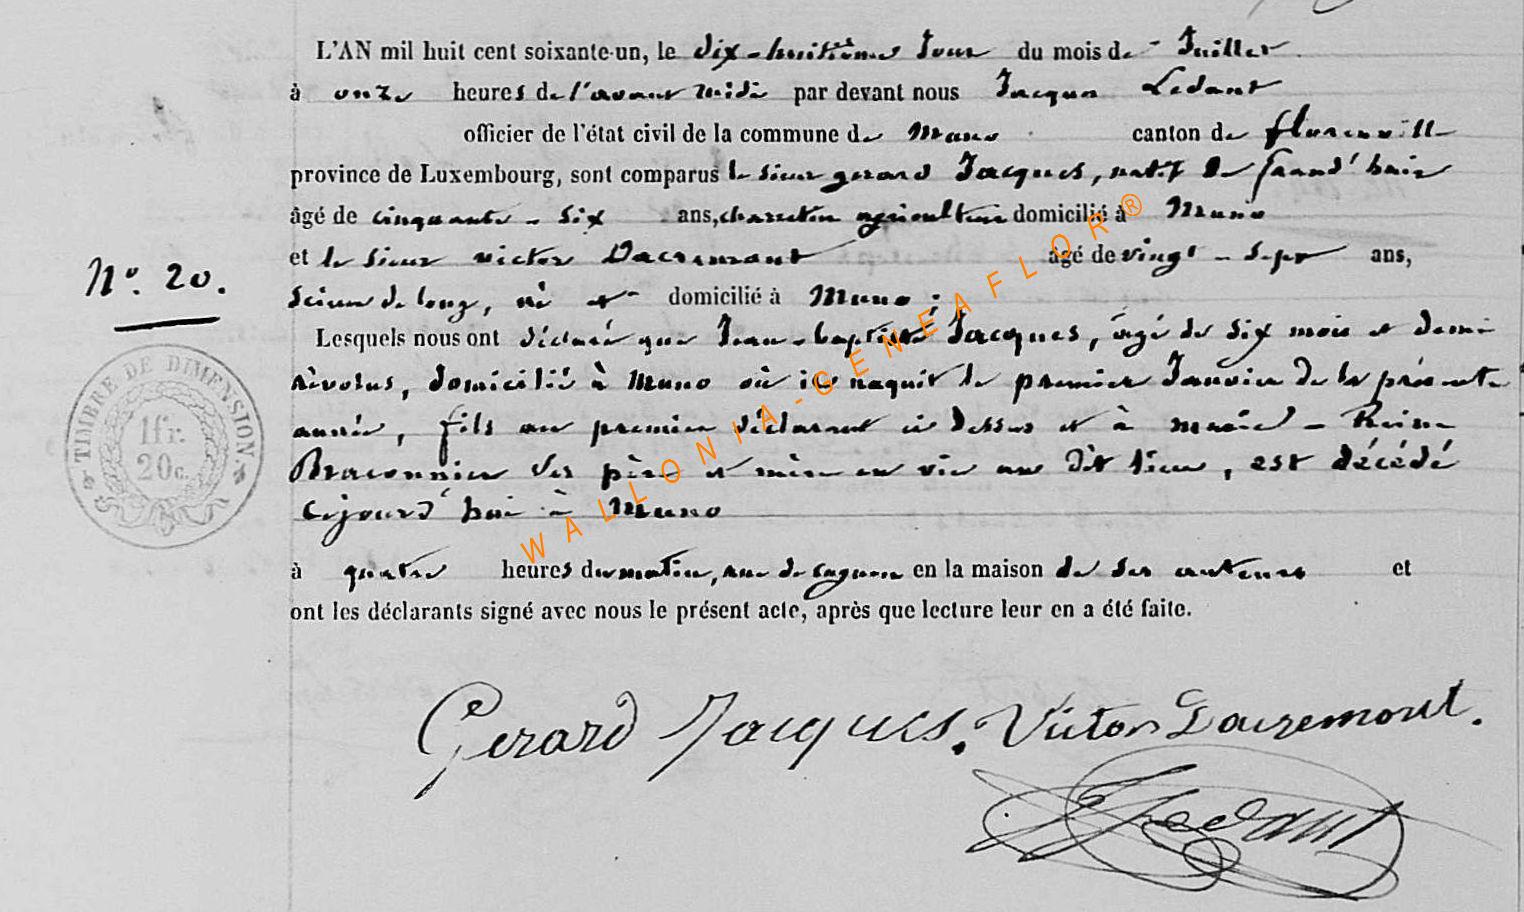 L'AN mil huit cent soixante-un, le dix-huitième Jour du mois de Juillet
à onze heures de l'avant midi par devant nous Jacques Ledant
officier de l'état civil de la commune de Muno canton de florenville
province de Luxembourg, sont comparus le sieur gerard Jacques, natif de
âgé de cinquante-six ans, agriculteur domicilié à Muno
et le sieur victor Dacremont âgé de vingt-sept ans,
Scieur de long, né et domicilié à Muno ;
N° 20.
Lesquels nous ont déclaré que Jean-baptiste Jacques, âgé de six mois et demi
révolus, domicilié à Muno où il naquit le premier Janvier de la présente
année, fils au premier déclarant ci dessus et à marie-Reine
Braconnier ses père et mère en vie au dit lieu, est décédé
cejourd'hui à Muno
à quatre heures du matin, rue de en la maison de ses auteurs et
ont les déclarants signé avec nous le présent acte, après que lecture leur en a été faite.
TIMBRE DE DIMENSION
1fr.
20c.
Gerard Jacques. Victor Dacremont.
JLedant
WALLONIA-GENEAFLOR®